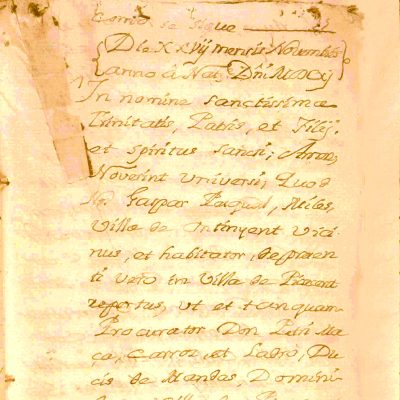 como se sigue
Die XXVij mensis Novembris
anno à Nat. Dñi MDXj
In nomine sanctissimæ
Trinitatis, Patris, et Filij,
et spiritus sancti, Amen,
Noverint universi, Quod
Gaspar Pasqual, Miles,
Villæ de Ontinyent vici-
nus, et habitator, de præsen
ti vero in Villa de
repertus, ut et tanquam
Procurator Don Petri Ma
ça, Carroz, et Ladrò, Du
cis de Mandas, Domini-